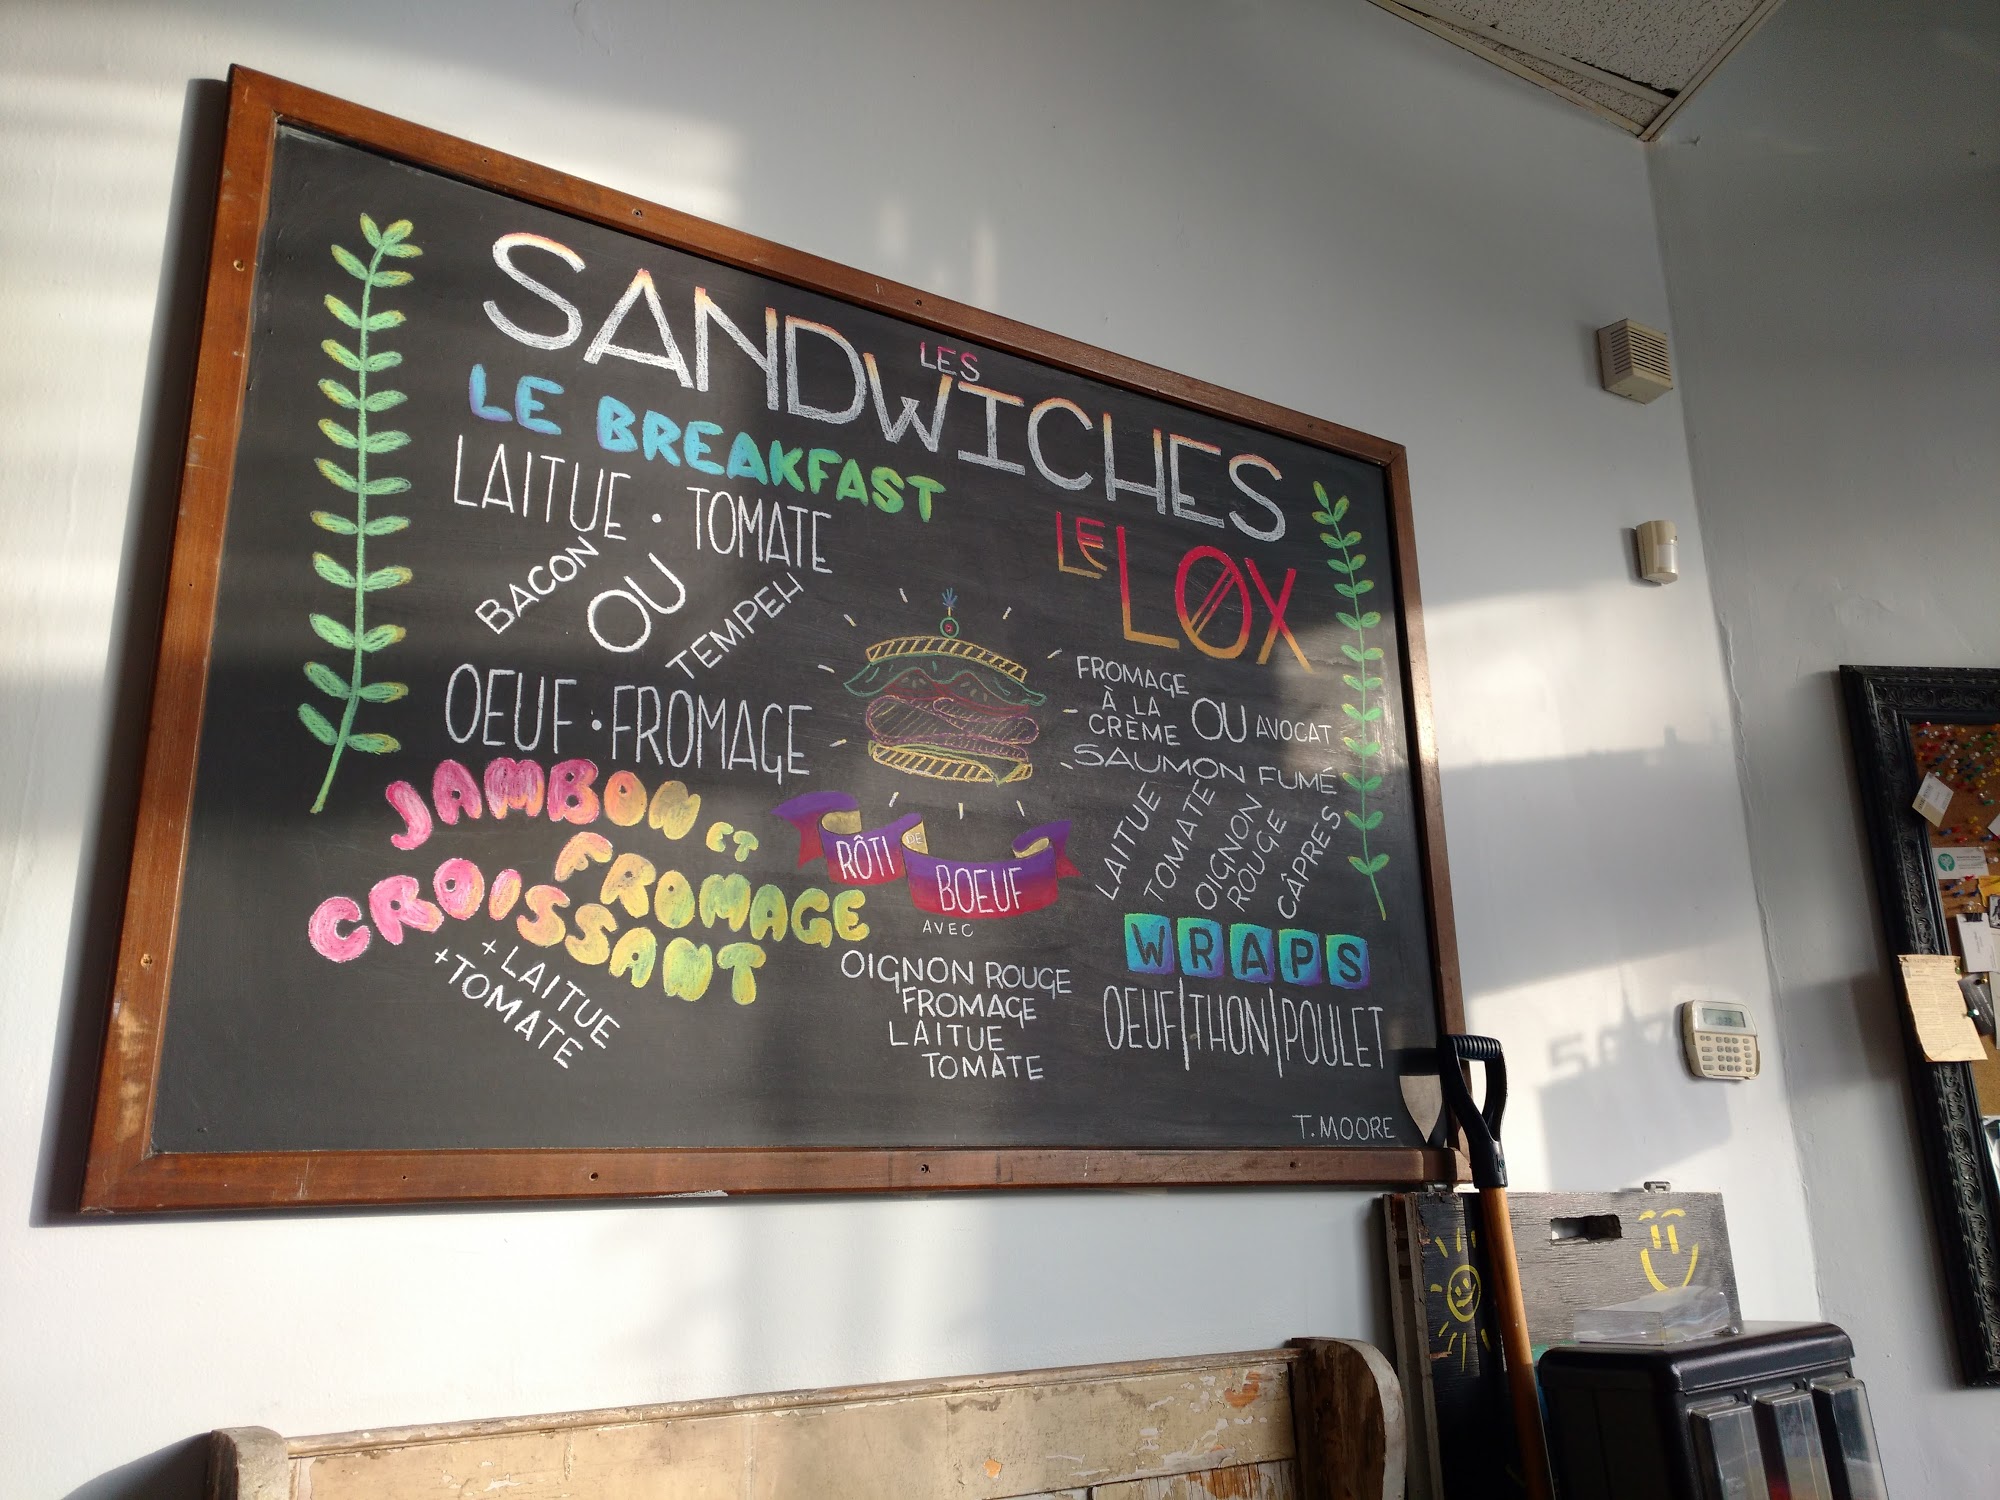 LES
SANDWICHES
LE BREAKFAST
LAITUE • TOMATE
BACON
OU
TEMPEH
OEUF • FROMAGE
JAMBON ET
FROMAGE
CROISSANT
+ LAITUE
+ TOMATE
RÔTI DE
BOEUF
AVEC
OIGNON ROUGE
FROMAGE
LAITUE
TOMATE
LE LOX
FROMAGE
À LA
CRÈME OU AVOCAT
SAUMON FUMÉ
LAITUE
TOMATE
OIGNON
ROUGE
CÂPRES
WRAPS
OEUF|THON|POULET
T. MOORE